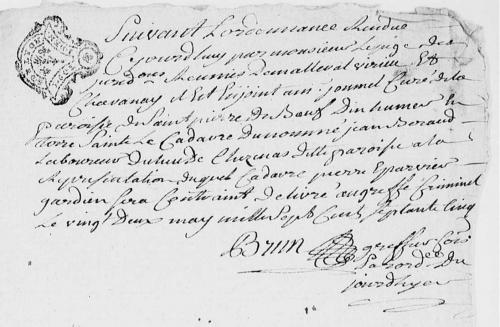 Suivant Lordonnance Rendue
Cejourdhuy par monsieur Lejuge des
jurid.ons Reunies Demalleval virieu Et
Chavanay il Est Enjoint a m. jommel Curé de la
paroisse de Saint pierre de Bœuf Dinhumer En
terre Sainte Le Cadavre Dunommé jean Beraud
Laboureur du lieu de ditte paroisse a la
Representation duquel Cadavre pierre Eparvier
gardien Sera Contraint delivré au greffe Criminel
Le vingt Deux may mille Sept Cent Septante Cinq
Brun greffier Cois
par ord.ce Du
jourdhyer